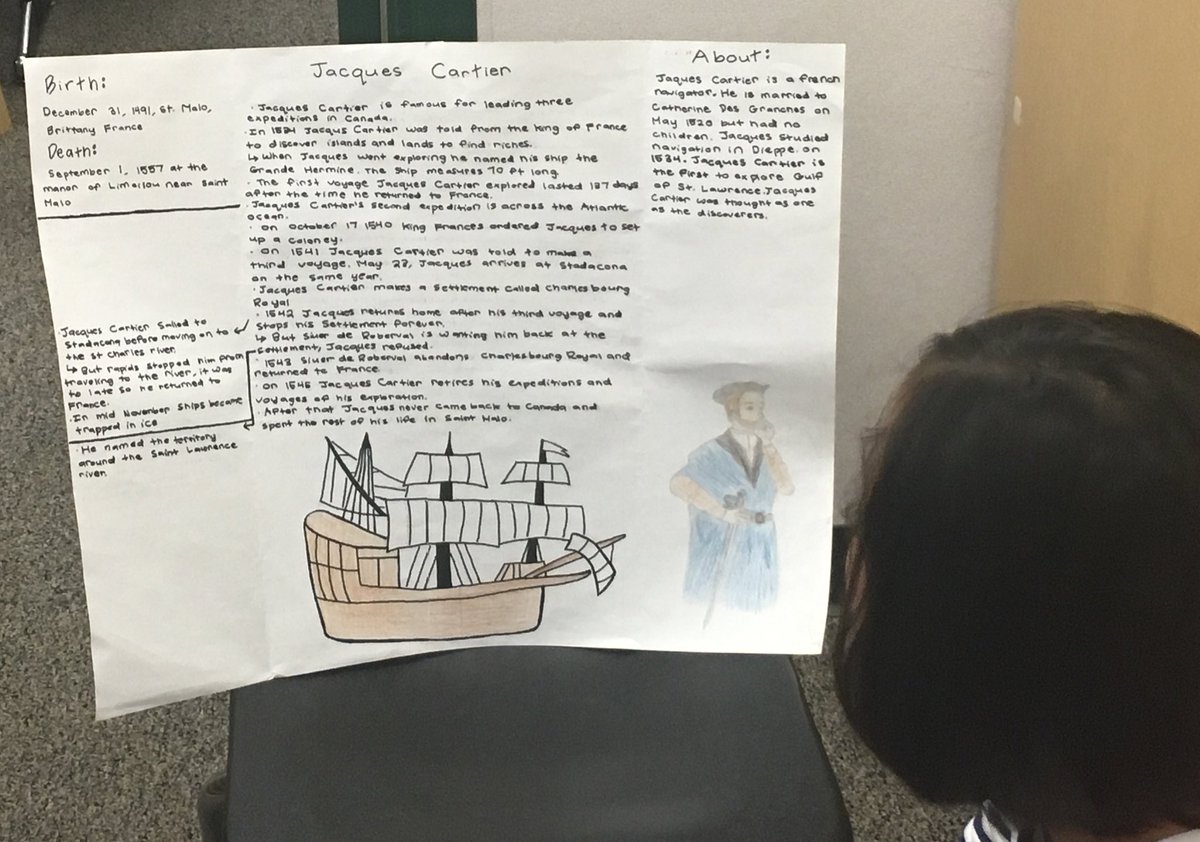 Birth:
December 31, 1491, St. Malo,
Brittany France
Death:
September 1, 1557 at the
manor of Limoilou near Saint
Malo
Jacques Cartier Sailed to
Stadacona before moving on to
the St charles river.
↳ But rapids stopped him from
traveling to the river, it was
to late so he returned to
France.
·In mid November Ships became
trapped in ice
· He named the territory
around the Saint Lawrence
river.
Jacques Cartier
· Jacques Cartier is famous for leading three
expeditions in Canada.
·In 1534 Jacqus Cartier was told from the king of France
to discover islands and lands to find riches.
↳ When Jacques went exploring he named his ship the
Grande Hermine. The ship measures 70 ft long.
· The first voyage Jacques Cartier explored lasted 137 days
after the time he returned to France.
·Jacques Cartier's second expedition is across the Atlantic
ocean.
· on October 17 1540 King Frances ordered Jacques to set
up a coloney.
· on 1541 Jacques Cartier was told to make a
third voyage. May 23, Jacques arrives at Stadacona
on the same year.
·Jacques Cartier makes a settlement called Charlesbourg
Royal
· 1542 Jacques returns home after his third voyage and
stops his settlement forever.
↳ But Siuer de Roberval is wanting him back at the
settlement, Jacques refused.
· 1543 Siuer de Roberval abandons Charlesbourg Royal and
returned to France.
· on 1546 Jacques Cartier retires his expeditions and
voyages of his exploration.
· After that Jacques never came back to Canada and
spent the rest of his life in Saint Malo.
About:
Jaques Cartier is a french
navigator. He is married to
Catherine Des Granches on
May 1520 but had no
children. Jacques studied
navigation in Dieppe. on
1534. Jacques Cartier is
the first to explore Gulf
of St. Lawrence. Jacques
Cartier was thought as one
as the discoverers.